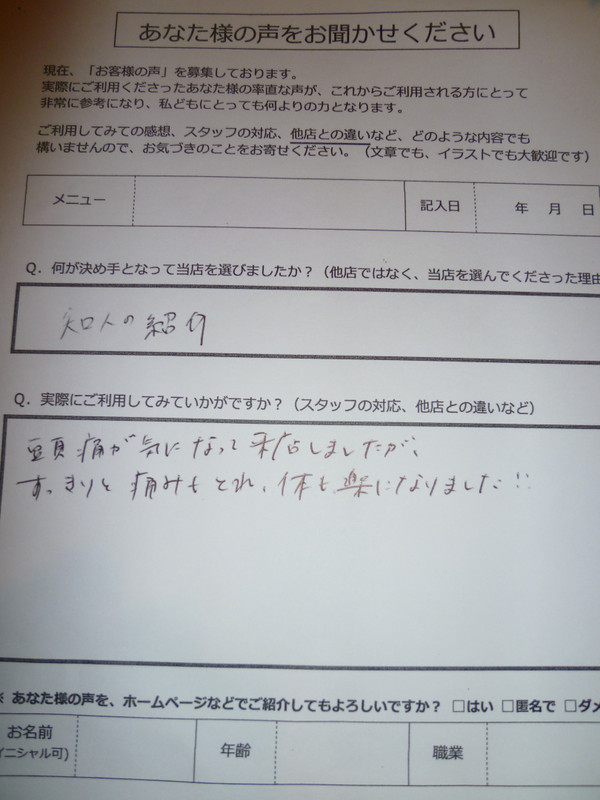 あなた様の声をお聞かせください
現在、「お客様の声」を募集しております。
実際にご利用くださったあなた様の率直な声が、これからご利用される方にとって
非常に参考になり、私どもにとっても何よりの力となります。
ご利用してみての感想、スタッフの対応、他店との違いなど、どのような内容でも
構いませんので、お気づきのことをお寄せください。（文章でも、イラストでも大歓迎です）
メニュー 記入日 年 月 日
Q．何が決め手となって当店を選びましたか？（他店ではなく、当店を選んでくださった理由
知人の紹介
Q．実際にご利用してみていかがですか？（スタッフの対応、他店との違いなど）
頭痛が気になって来店しましたが、
すっきりと痛みもとれ、体も楽になりました!!
※ あなた様の声を、ホームページなどでご紹介してもよろしいですか？ □はい □匿名で □ダメ
お名前 年齢 職業
イニシャル可)